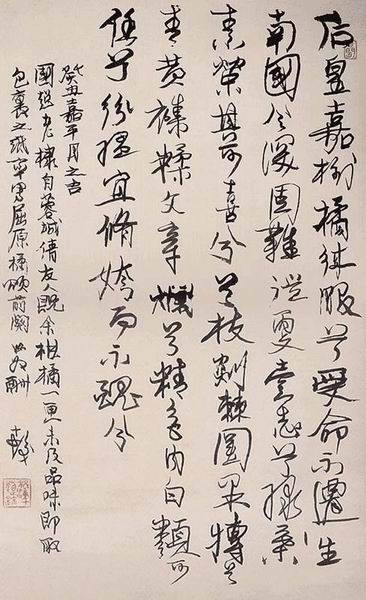 后皇嘉樹橘徠服兮受命不遷生
南國兮深固難徙更壹志兮綠葉
素榮其可喜兮枝剡棘圓果摶兮
青黃襍糅文章爛兮精色內白類可
任兮紛縕宜脩姱而不醜兮
癸丑嘉平月之吉
國 老棣自蓉城倩友人貺余柑橘一匣未及品味即取
包裹之紙率寫屈原橘頌前闋以為酬
十髮